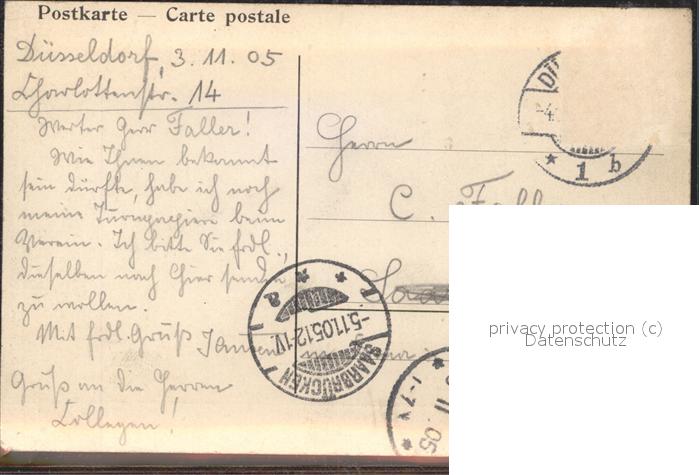 Postkarte — Carte postale
Düsseldorf, 3.11.05
Charlottenstr. 14
Werter Herr Faller!
Wie Ihnen bekannt
sein dürfte, habe ich noch
meine Turnpapiere beim
Verein. Ich bitte Sie frdl.,
dieselben nach hier senden
zu wollen.
Mit frdl. Gruß Jansen
Gruß an die Herren
Collegen!
Herrn
C. Faller
DÜ
-4.
* 1 b
-5.11.05.12-1V.
SAARBRÜCKEN 1
11.05
1-7V
privacy protection (c)
Datenschutz